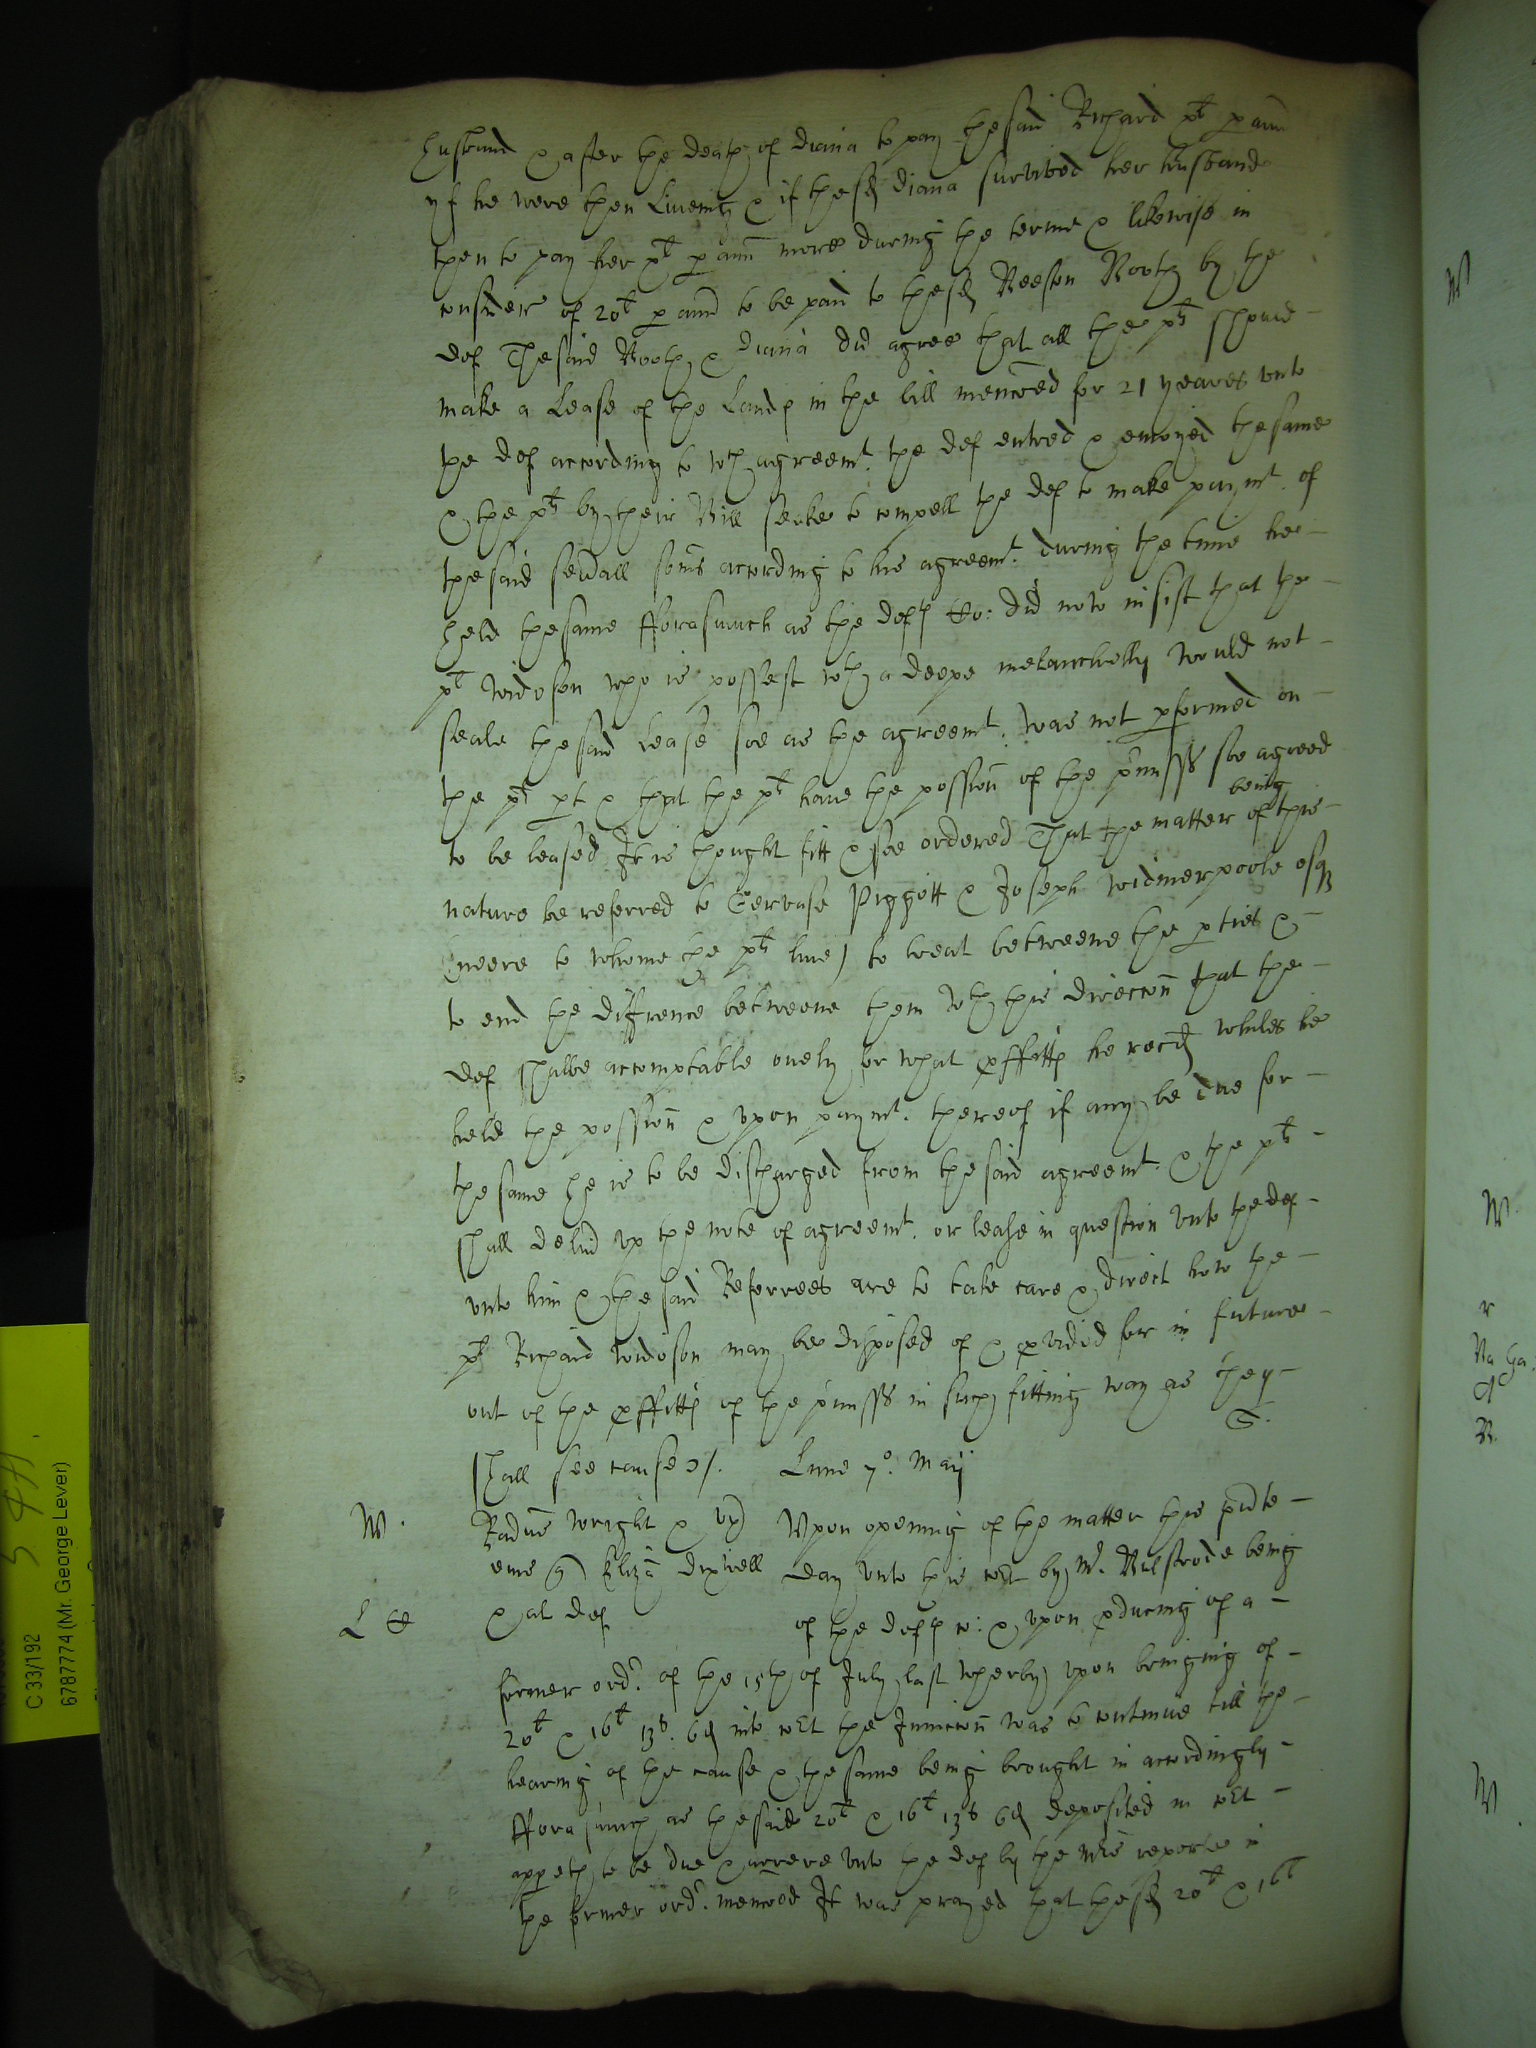 husband & after the death of Diana to pay the said Richard x£ p ann
yf he were then Liveing & if the sd Diana survived her husband
then to pay her x£ p ann more during the terme & likewise in
consider of 20£ p ann to be paid to the sd Beeston Booth by the
def The said Booth & Diana did agree that all the plts should
make a Lease of the Lands in the bill menc̃oed for 21 yeares unto
the def according to wch agreemt. the def entred & enioyed the same
& the plts by their Bill seeke to compell the def to make paymt. of
the said sev̄all som̄s according to his agreemt. during the time he
held the same fforasmuch as the defts Co: did now insist that the
plt Widoson who is possest wth a deepe melanchelly would not
seale the said Lease soe as the agreemt. was not pformed on
the plts pt & that the plts have the possion of the p̄miss̄s soe agreed
to be leased It is thought fitt & soe ordered That the matter being of this
nature be referred to Gervase Piggott & Joseph Widmerpoole esqs
(neere to whome the plts live) to treat betweene the pties &
to end the diffrence betweene them wth this direccon that the
def shalbe accomptable onely for what pffitts he recd whiles he
held the possion & upon paymt. thereof if any be due for
the same he is to be discharged from the said agreemt. & the plts
shall deliv̄ up the note of agreemt. or lease in question unto the def
unto him & the said Referrees are to take care & direct how the
plt Richard Widoson may be disposed of & pvided for in future
out of the pffitts of the p̄miss̄s in such fitting way as they
shall see cause /.
Lune 7o. Maij
W.
Radus Wright & ux
Upon opening of the matter this p̄nte
quer Eliz̄a Dixwell
day unto this Cort by Mr. Bulstrode being
L &
& al def
of the defts Co: & upon pducing of a
former ordr. of the 15th of July last wherby upon bringing of
20£ & 16£ 13s. 6d into Cort the Iniuncc̃on was to continue till the
hearing of the cause & the same being brought in accordingly
fforasmuch as the said 20£ & 16£ 13s 6d deposited in Cort
appeth to be due & arrere unto the def by the Mrs reporte in
the former ordr. menc̃oed It was prayed that the sd 20£ & 16£
W
W.
r
Na
R.
W
C 33/192
6787774 (Mr. George Lever)